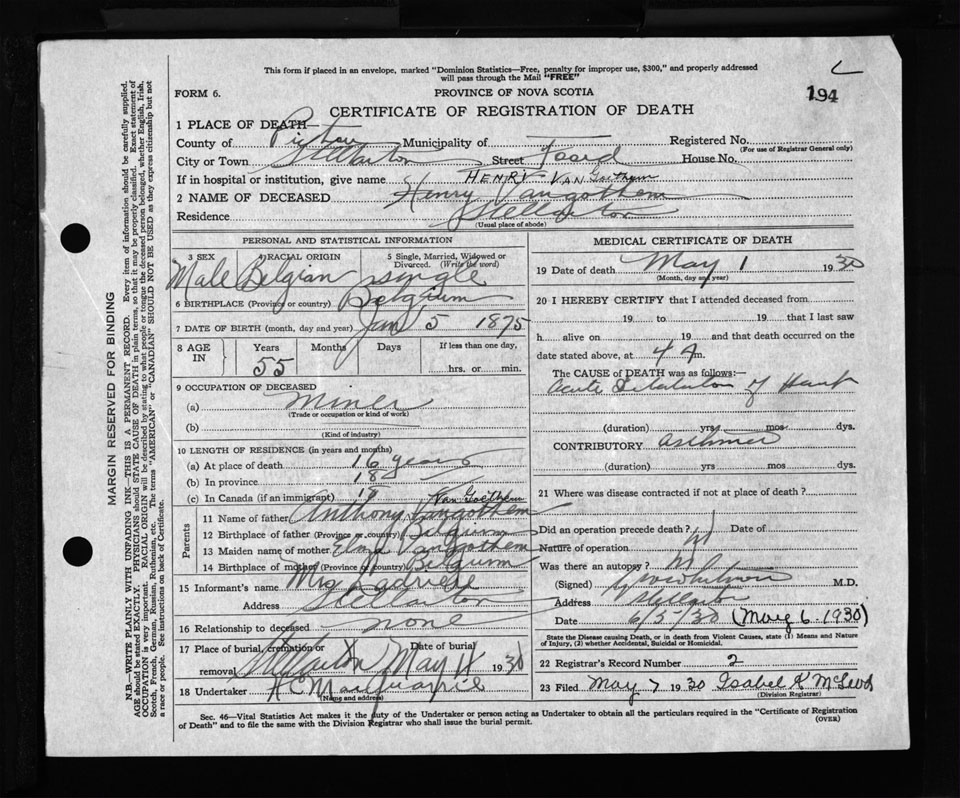 This form if placed in an envelope, marked "Dominion Statistics—Free, penalty for improper use, $300," and properly addressed
will pass through the Mail "FREE"
FORM 6.
PROVINCE OF NOVA SCOTIA
194
CERTIFICATE OF REGISTRATION OF DEATH
1 PLACE OF DEATH
County of Pictou Municipality of Registered No.
(For use of Registrar General only)
City or Town Stellarton Street Foord House No.
If in hospital or institution, give name HENRY VAN Goethem
2 NAME OF DECEASED Henry Vangothem
Residence Stellarton
(Usual place of abode)
PERSONAL AND STATISTICAL INFORMATION
3 SEX 4 RACIAL ORIGIN 5 Single, Married, Widowed or Divorced. (Write the word)
Male Belgian single
6 BIRTHPLACE (Province or country) Belgium
7 DATE OF BIRTH (month, day and year) Jan 5 1875
8 AGE IN Years Months Days If less than one day,
55 hrs. or min.
9 OCCUPATION OF DECEASED
(a) Miner
(Trade or occupation or kind of work)
(b)
(Kind of industry)
10 LENGTH OF RESIDENCE (in years and months)
(a) At place of death 16 years
(b) In province 18
(c) In Canada (if an immigrant) 18
Van Goethem
Parents
11 Name of father Anthony Vangothem
12 Birthplace of father (Province or country) Belgium
13 Maiden name of mother Vangothem
14 Birthplace of mother (Province or country) Belgium
15 Informant's name Mrs
Address Stellarton
16 Relationship to deceased none
17 Place of burial, cremation or removal Stellarton Date of burial May 1930
18 Undertaker H C Macquarrie
(Name and address)
MEDICAL CERTIFICATE OF DEATH
19 Date of death May 1 1930
(Month, day and year)
20 I HEREBY CERTIFY that I attended deceased from
19 to 19 that I last saw
h. alive on 19 and that death occurred on the
date stated above, at 4 A m.
The CAUSE of DEATH was as follows:—
Acute Dilatation of Heart
(duration) yrs mos dys.
CONTRIBUTORY asthma
(duration) yrs mos dys.
21 Where was disease contracted if not at place of death?
Did an operation precede death? Date of
Nature of operation
Was there an autopsy?
(Signed) M.D.
Address Stellarton
Date 6/5/30 (May 6. 1930)
State the Disease causing Death, or in death from Violent Causes, state (1) Means and Nature
of Injury, (2) whether Accidental, Suicidal or Homicidal.
22 Registrar's Record Number 2
23 Filed May 7 1930 Isabel K McLeod
(Division Registrar)
Sec. 46—Vital Statistics Act makes it the duty of the Undertaker or person acting as Undertaker to obtain all the particulars required in the "Certificate of Registration
of Death" and to file the same with the Division Registrar who shall issue the burial permit.
(OVER)
MARGIN RESERVED FOR BINDING
N.B.—WRITE PLAINLY WITH UNFADING INK—THIS IS A PERMANENT RECORD. Every item of information should be carefully supplied.
AGE should be stated EXACTLY. PHYSICIANS should STATE CAUSE OF DEATH in plain terms, so that it may be properly classified. Exact statement of
OCCUPATION is very important. RACIAL ORIGIN will be described by stating to what people or tongue the deceased person belonged, whether English, Irish,
Scotch, French, German, Russian, Ruthenian, etc. The terms "AMERICAN" or "CANADIAN" SHOULD NOT BE USED as they express citizenship but not
a race or people. See instructions on back of Certificate.